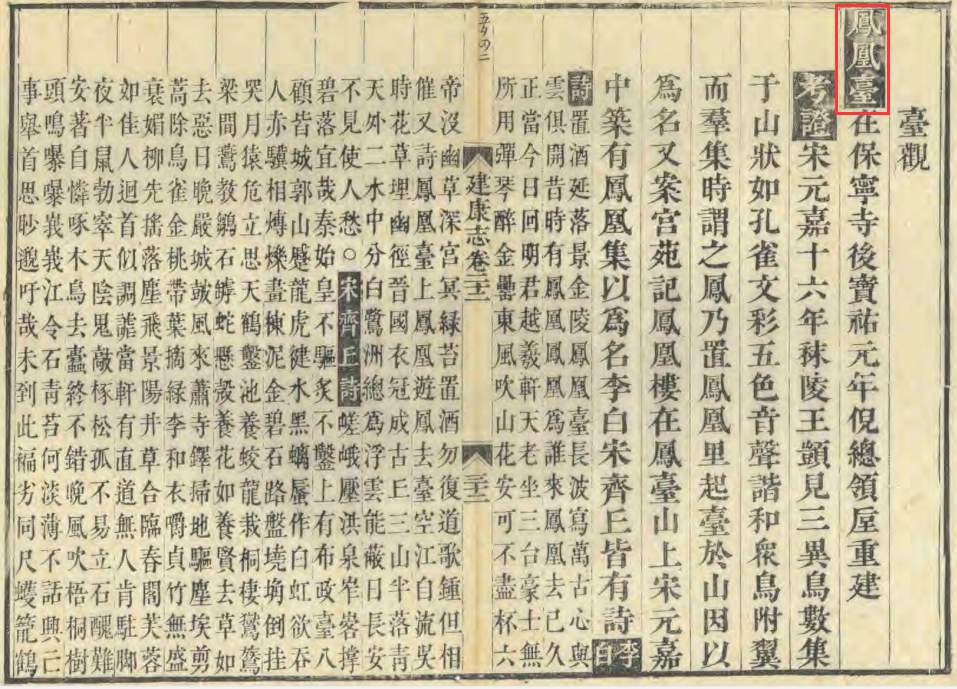 臺觀
鳳凰臺在保寧寺後寶祐元年倪總領垕重建
考證宋元嘉十六年秣陵王顗見三異鳥數集
于山狀如孔雀文彩五色音聲諧和衆鳥附翼
而羣集時謂之鳳乃置鳳凰里起臺於山因以
爲名又案宮苑記鳳凰樓在鳳臺山上宋元嘉
中築有鳳凰集以爲名李白宋齊丘皆有詩李白
詩置酒延落景金陵鳳凰臺長波寫萬古心與
雲俱開昔時有鳳凰鳳凰爲誰來鳳凰去已久
正當今日回明君越羲軒天老坐三台豪士無
所用彈琴醉金罍東風吹山花安可不盡杯六
建康志卷二十二
帝沒幽草深宮冥緑苔置酒勿復道歌鍾但相
催又詩鳳凰臺上鳳凰遊鳳去臺空江自流吳
時花草埋幽徑晉國衣冠成古丘三山半落青
天外二水中分白鷺洲總爲浮雲能蔽日長安
不見使人愁○宋齊丘詩嵯峨壓洪泉岝峉撑
碧落宜哉秦始皇不驅炙不鑿上有布政臺八
顧皆城郭山蹙龍虎健水黑螭蜃作白虹欲吞
人赤驥相煿爍畫棟泥金碧石路盤墝埆倒挂
哭月猿危立思天鶴鑿池養蛟龍栽桐棲鸑鷟
梁間鷰教鶵石罅蛇懸殼養花如養賢去草如
去惡日晚嚴城鼓風來蕭寺鐸掃地驅塵埃剪
蒿除鳥雀金桃帶葉摘緑李和衣嚼貞竹無盛
衰媚柳先搖落塵飛景陽井草合臨春閣芙蓉
如佳人迴首似調謔當軒有直道無人肯駐脚
夜半鼠勃窣天陰鬼敲椓松孤不易立石醜難
安著自憐啄木鳥去蠹終不錯晚風吹梧桐樹
頭鳴嚗嚗峩峩江令石青苔何淡薄不話興亡
事舉首思眇邈吁哉未到此褊劣同尺蠖籠鶴